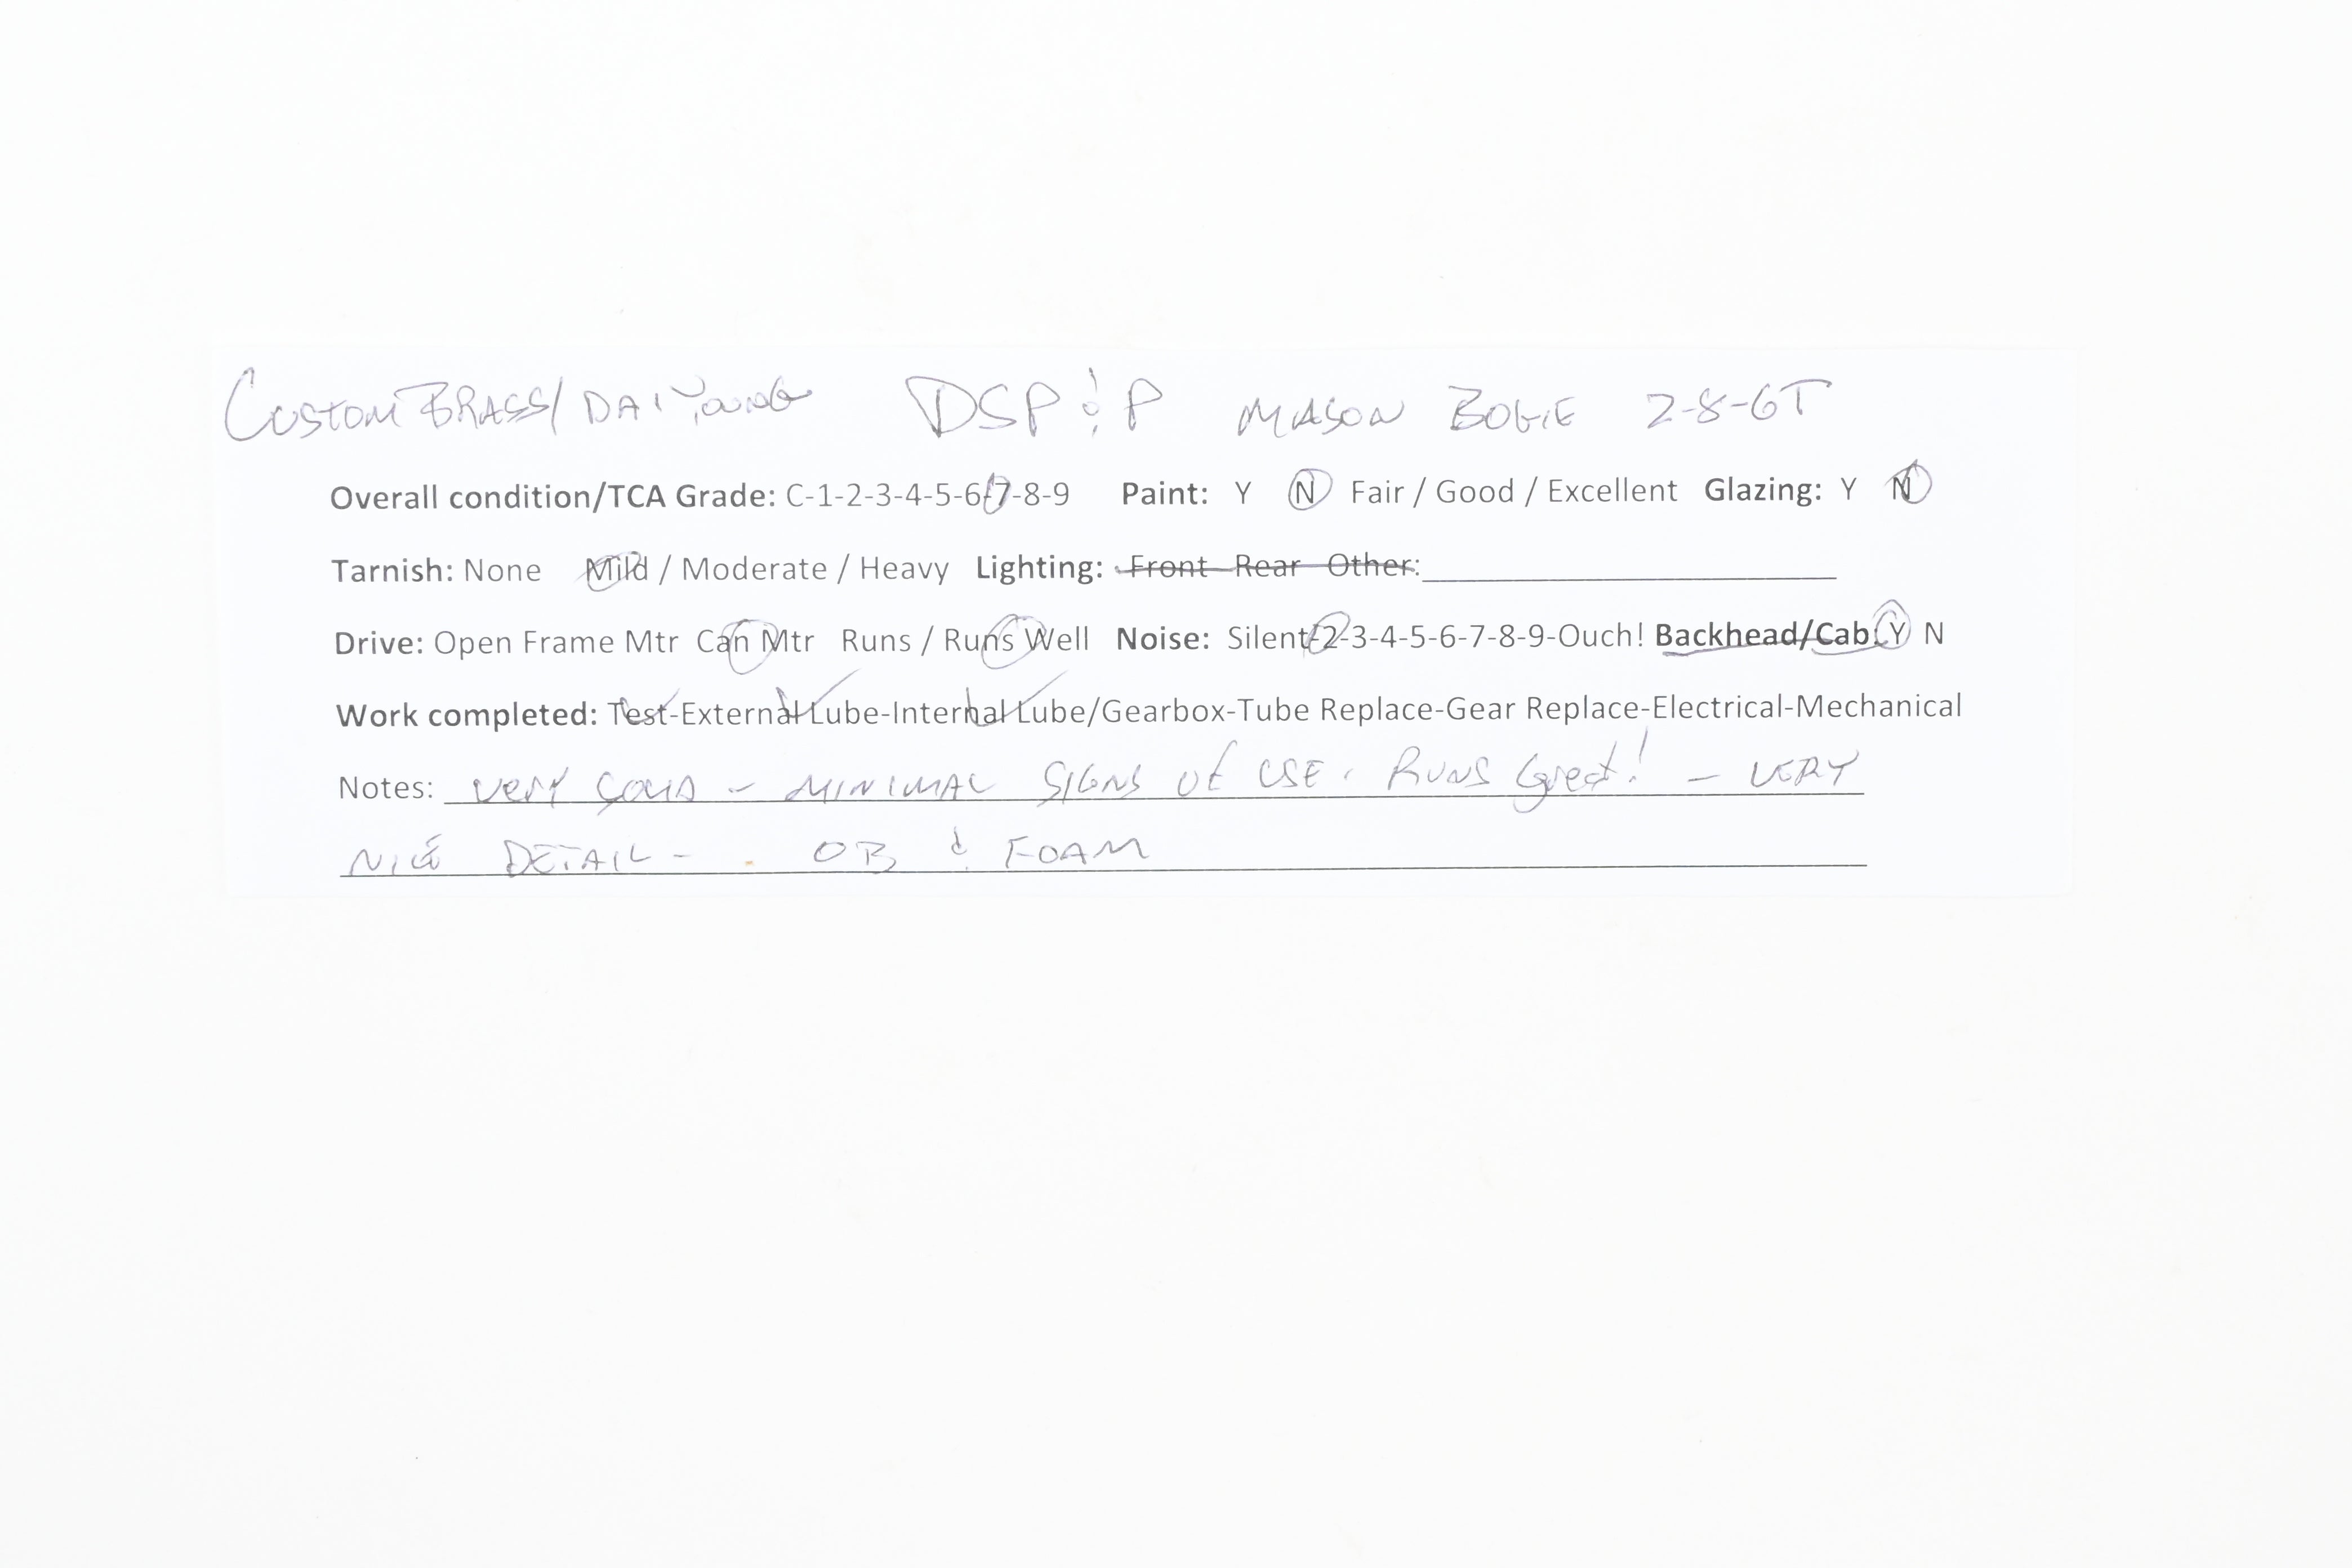 Custom Brass/Dai Young DSP&P Mason Bogie 2-8-6T
Overall condition/TCA Grade: C-1-2-3-4-5-6-7-8-9 Paint: Y N Fair / Good / Excellent Glazing: Y N
Tarnish: None Mild / Moderate / Heavy Lighting: Front Rear Other:
Drive: Open Frame Mtr Can Mtr Runs / Runs Well Noise: Silent-2-3-4-5-6-7-8-9-Ouch! Backhead/Cab: Y N
Work completed: Test-External Lube-Internal Lube/Gearbox-Tube Replace-Gear Replace-Electrical-Mechanical
Notes: Very solid - minimal signs of use. Runs Great! - Very
nice detail - OB & Foam